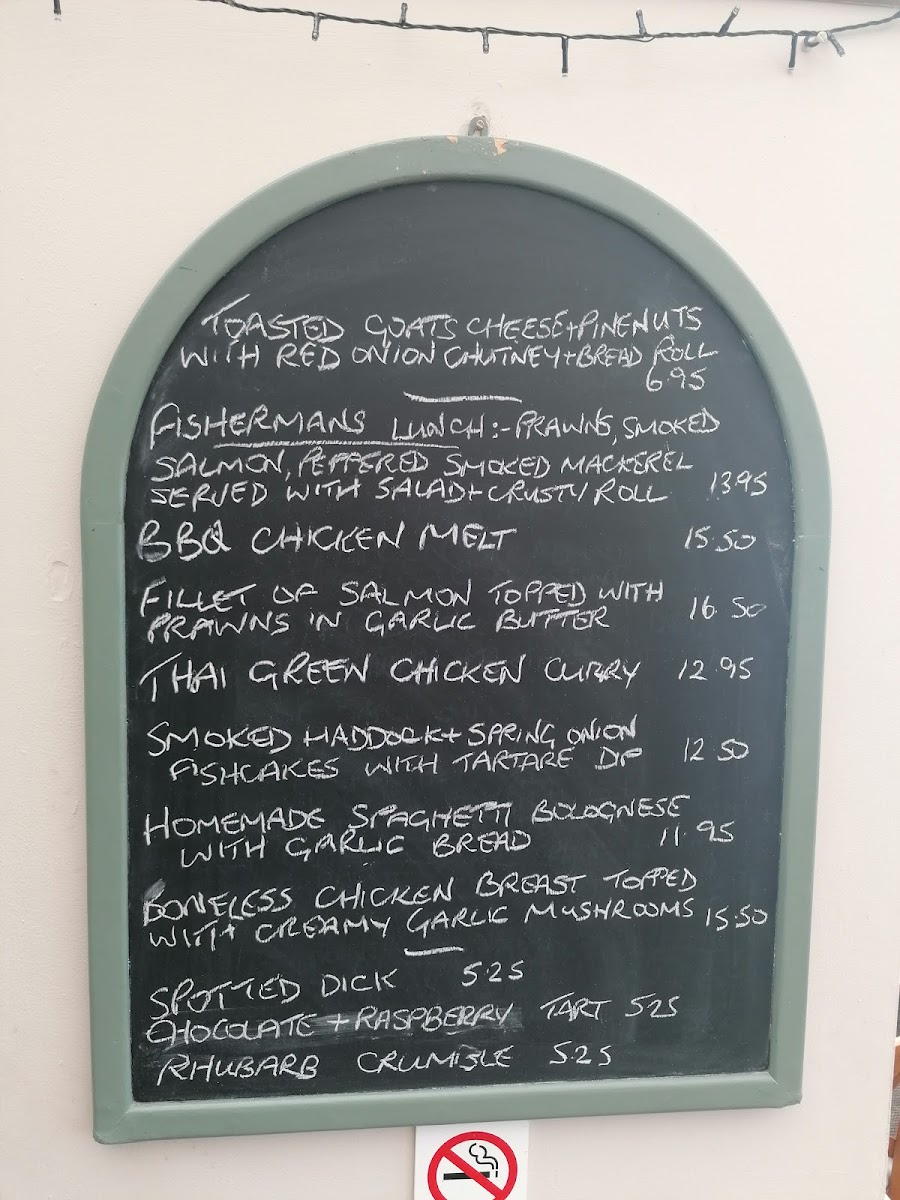 TOASTED GOATS CHEESE+PINENUTS
WITH RED ONION CHUTNEY+BREAD ROLL
6.95
FISHERMANS LUNCH:- PRAWNS, SMOKED
SALMON, PEPPERED SMOKED MACKEREL
SERVED WITH SALAD+CRUSTY ROLL 13.95
BBQ CHICKEN MELT 15.50
FILLET OF SALMON TOPPED WITH
PRAWNS IN GARLIC BUTTER 16.50
THAI GREEN CHICKEN CURRY 12.95
SMOKED HADDOCK+ SPRING ONION
FISHCAKES WITH TARTARE DIP 12.50
HOMEMADE SPAGHETTI BOLOGNESE
WITH GARLIC BREAD 11.95
BONELESS CHICKEN BREAST TOPPED
WITH CREAMY GARLIC MUSHROOMS 15.50
SPOTTED DICK 5.25
CHOCOLATE +RASPBERRY TART 5.25
RHUBARB CRUMBLE 5.25